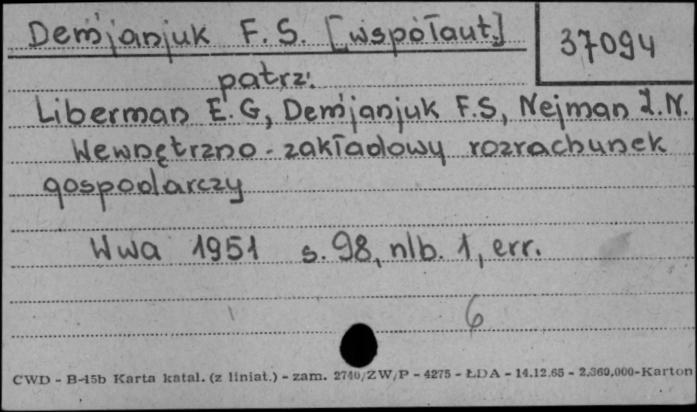 Dem'janjuk F. S. [współaut.]
37094
patrz:
Liberman E. G, Dem'janjuk F.S, Nejman Ż. N.
Wewnętrzno - zakładowy rozrachunek
gospodarczy
Wwa 1951 s. 98, nlb. 1, err.
6
CWD - B-15b Karta katal. (z liniat.) - zam. 2740/ZW/P - 4275 - ŁDA - 14.12.65 - 2,360,000-Karton